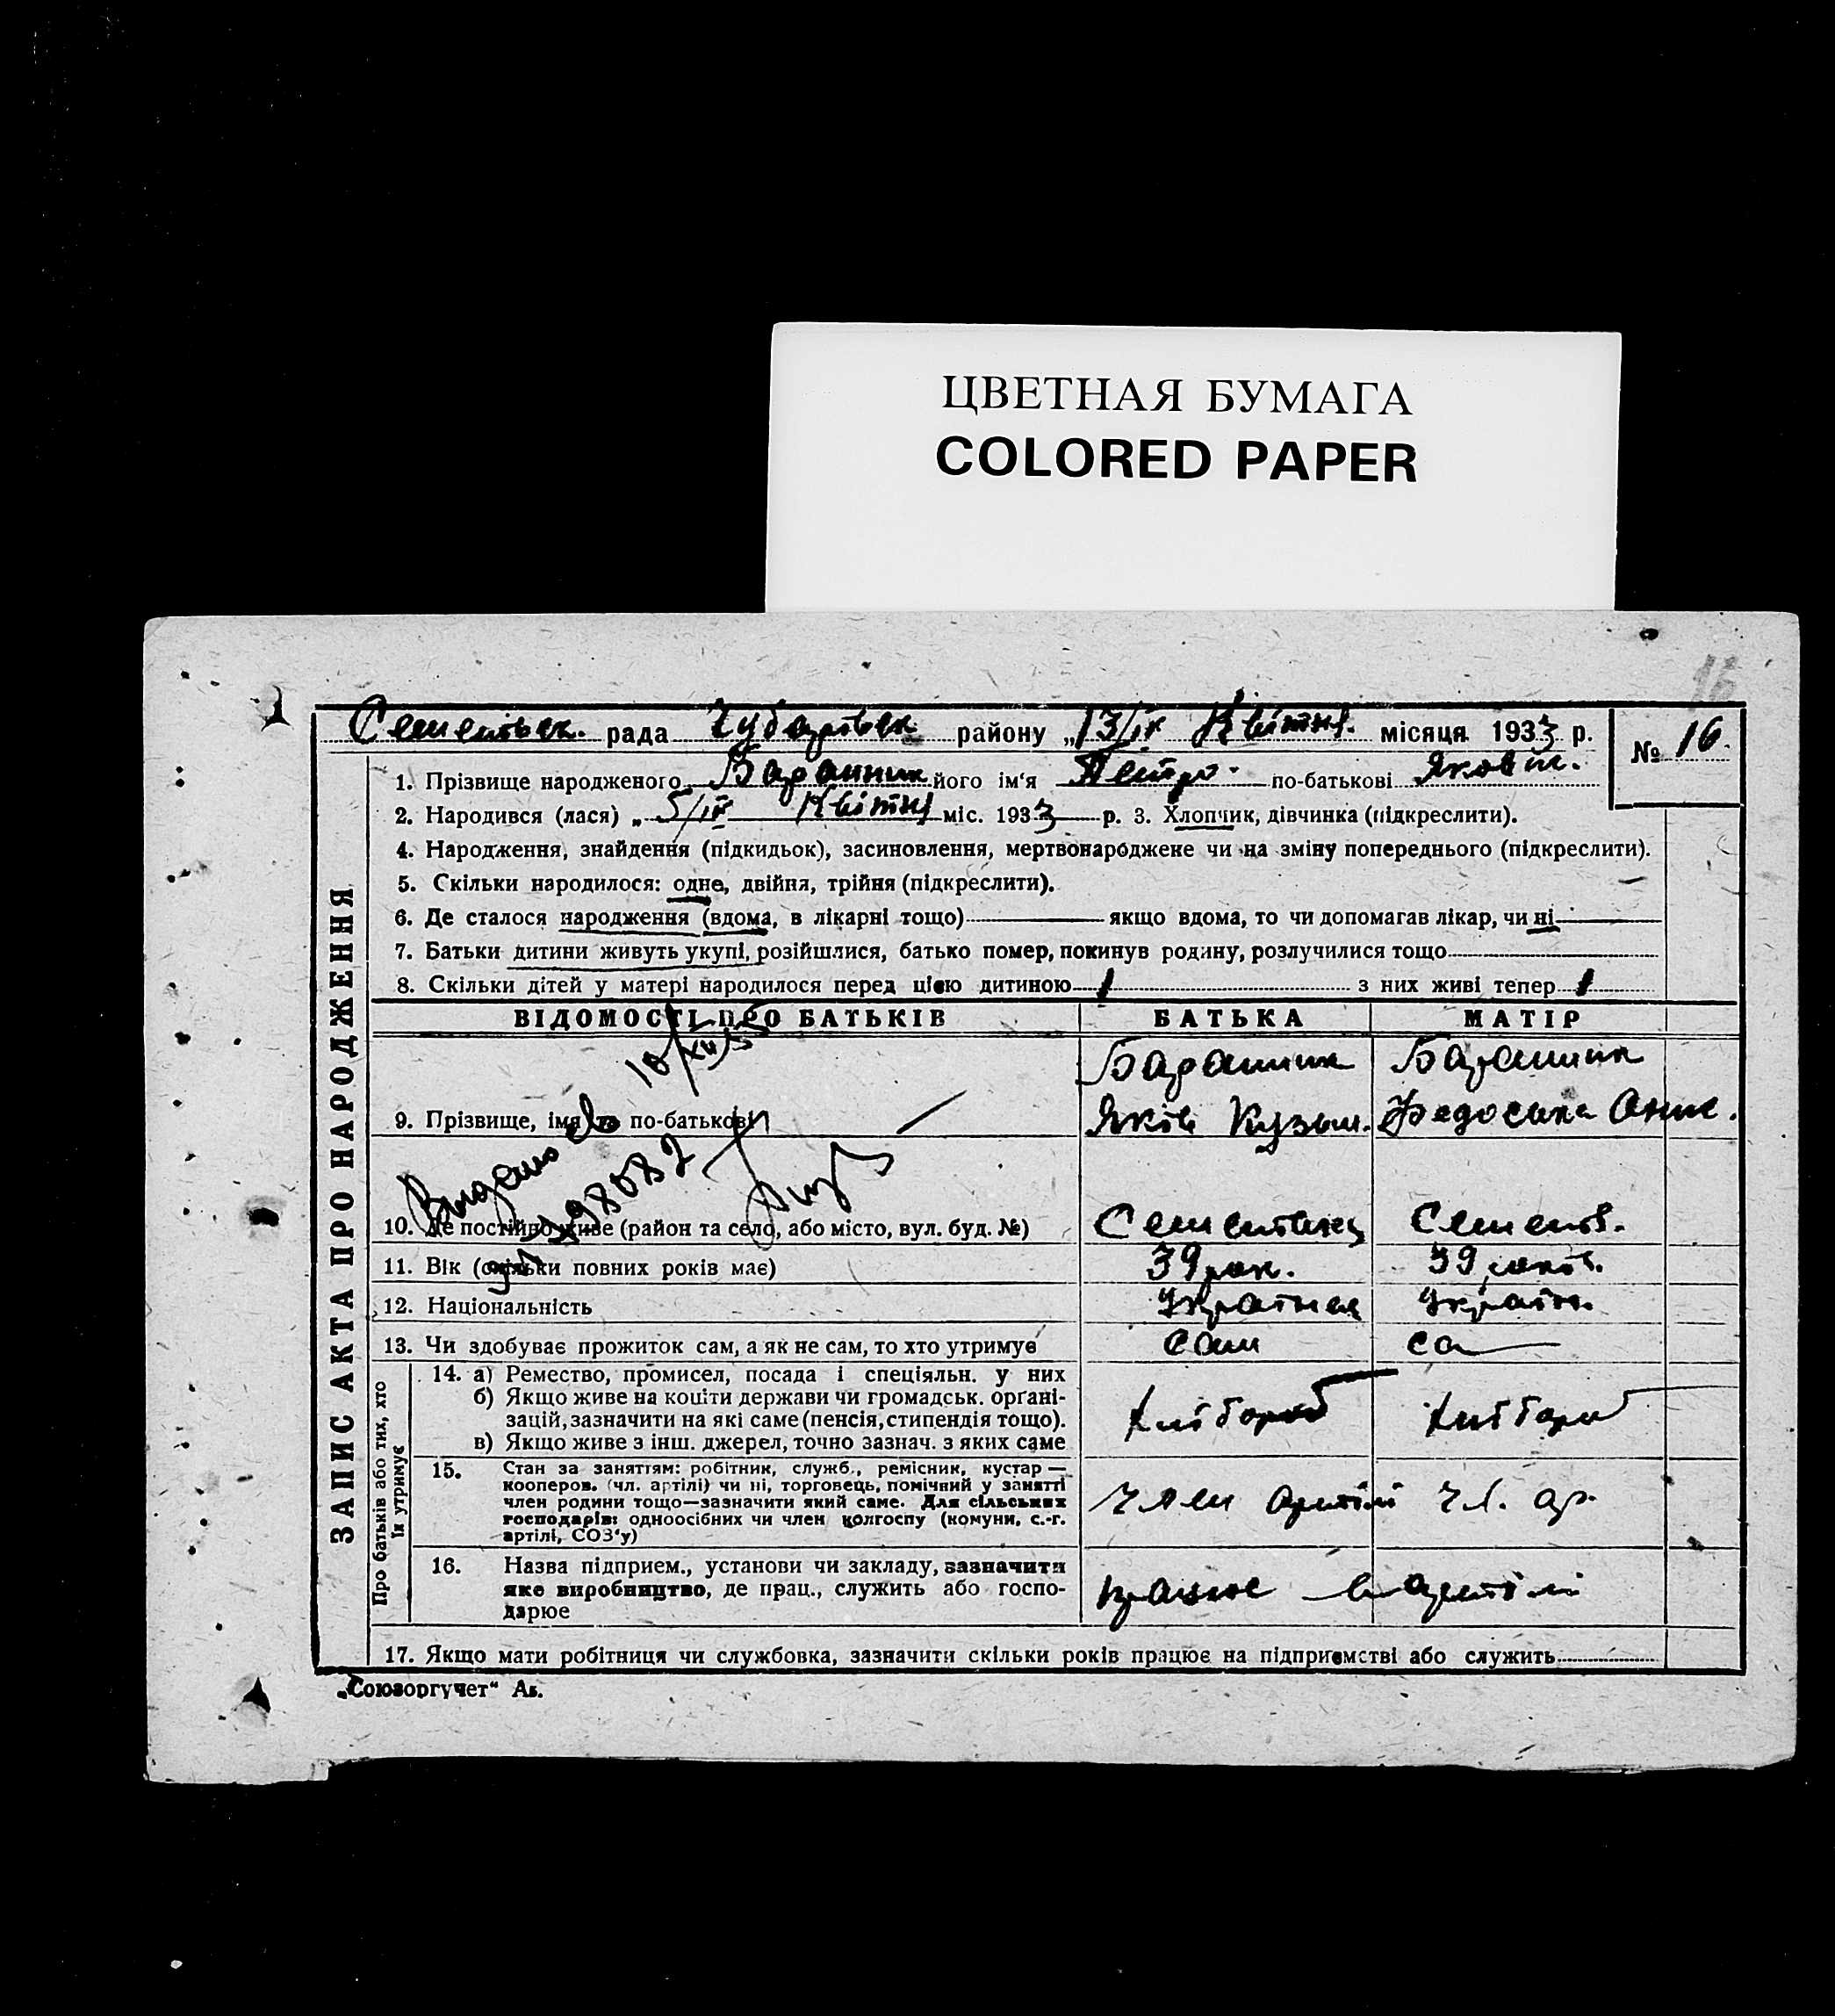 ЦВЕТНАЯ БУМАГА
COLORED PAPER
16
рада Чубарівськ району „13/IV Квітня місяця 1933 р.
№ 16.
1. Прізвище народженого Баранник його ім'я Петро по-батькові Яковл.
2. Народився (лася) „5/IV Квітня міс. 1933 р. 3. Хлопчик, дівчинка (підкреслити).
4. Народження, знайдення (підкидьок), засиновлення, мертвонароджене чи на зміну попереднього (підкреслити).
5. Скільки народилося: одне, двійня, трійня (підкреслити).
6. Де сталося народження (вдома, в лікарні тощо) якщо вдома, то чи допомагав лікар, чи ні
7. Батьки дитини живуть укупі, розійшлися, батько помер, покинув родину, розлучилися тощо
8. Скільки дітей у матері народилося перед цією дитиною 1 з них живі тепер 1
ЗАПИС АКТА ПРО НАРОДЖЕННЯ
ВІДОМОСТІ ПРО БАТЬКІВ БАТЬКА МАТІР
Баранник Баранник
9. Прізвище, імя та по-батькові Яків Кузьм. Федоська
10. Де постійно живе (район та село, або місто, вул. буд. №)
11. Вік (скільки повних років має) 39 рок. 39 років.
12. Національність Українец Україн.
13. Чи здобуває прожиток сам, а як не сам, то хто утримує сам са
Про батьків або тих, хто їх утримує
14. а) Ремество, промисел, посада і спеціяльн. у них
б) Якщо живе на кошти держави чи громадськ. органі-
зацій, зазначити на які саме (пенсія, стипендія тощо).
в) Якщо живе з інш. джерел, точно зазнач. з яких саме
хлібороб хлібороб
15. Стан за заняттям: робітник, служб., ремісник, кустар —
кооперов. (чл. артілі) чи ні, торговець, помічний у занятті
член родини тощо—зазначити який саме. Для сільських
господарів: одноосібних чи член колгоспу (комуни, с.-г.
артілі, СОЗ'у)
член артілі чл. ар.
16. Назва підприєм., установи чи закладу, зазначити
яке виробництво, де прац., служить або госпо-
дарює
працює в артілі
17. Якщо мати робітниця чи службовка, зазначити скільки років працює на підприємстві або служить
Видано
„Союзоргучет“